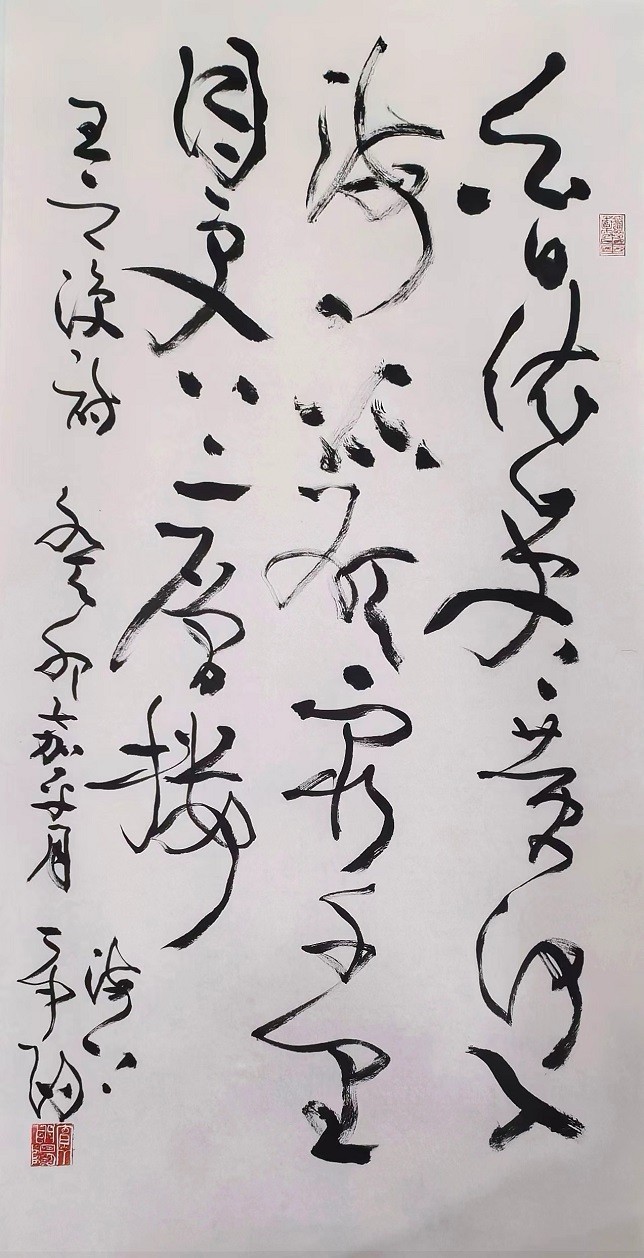 白日依山尽黄河入
海流欲穷千里
目更上一层楼
王之涣诗 癸卯嘉平月
海上